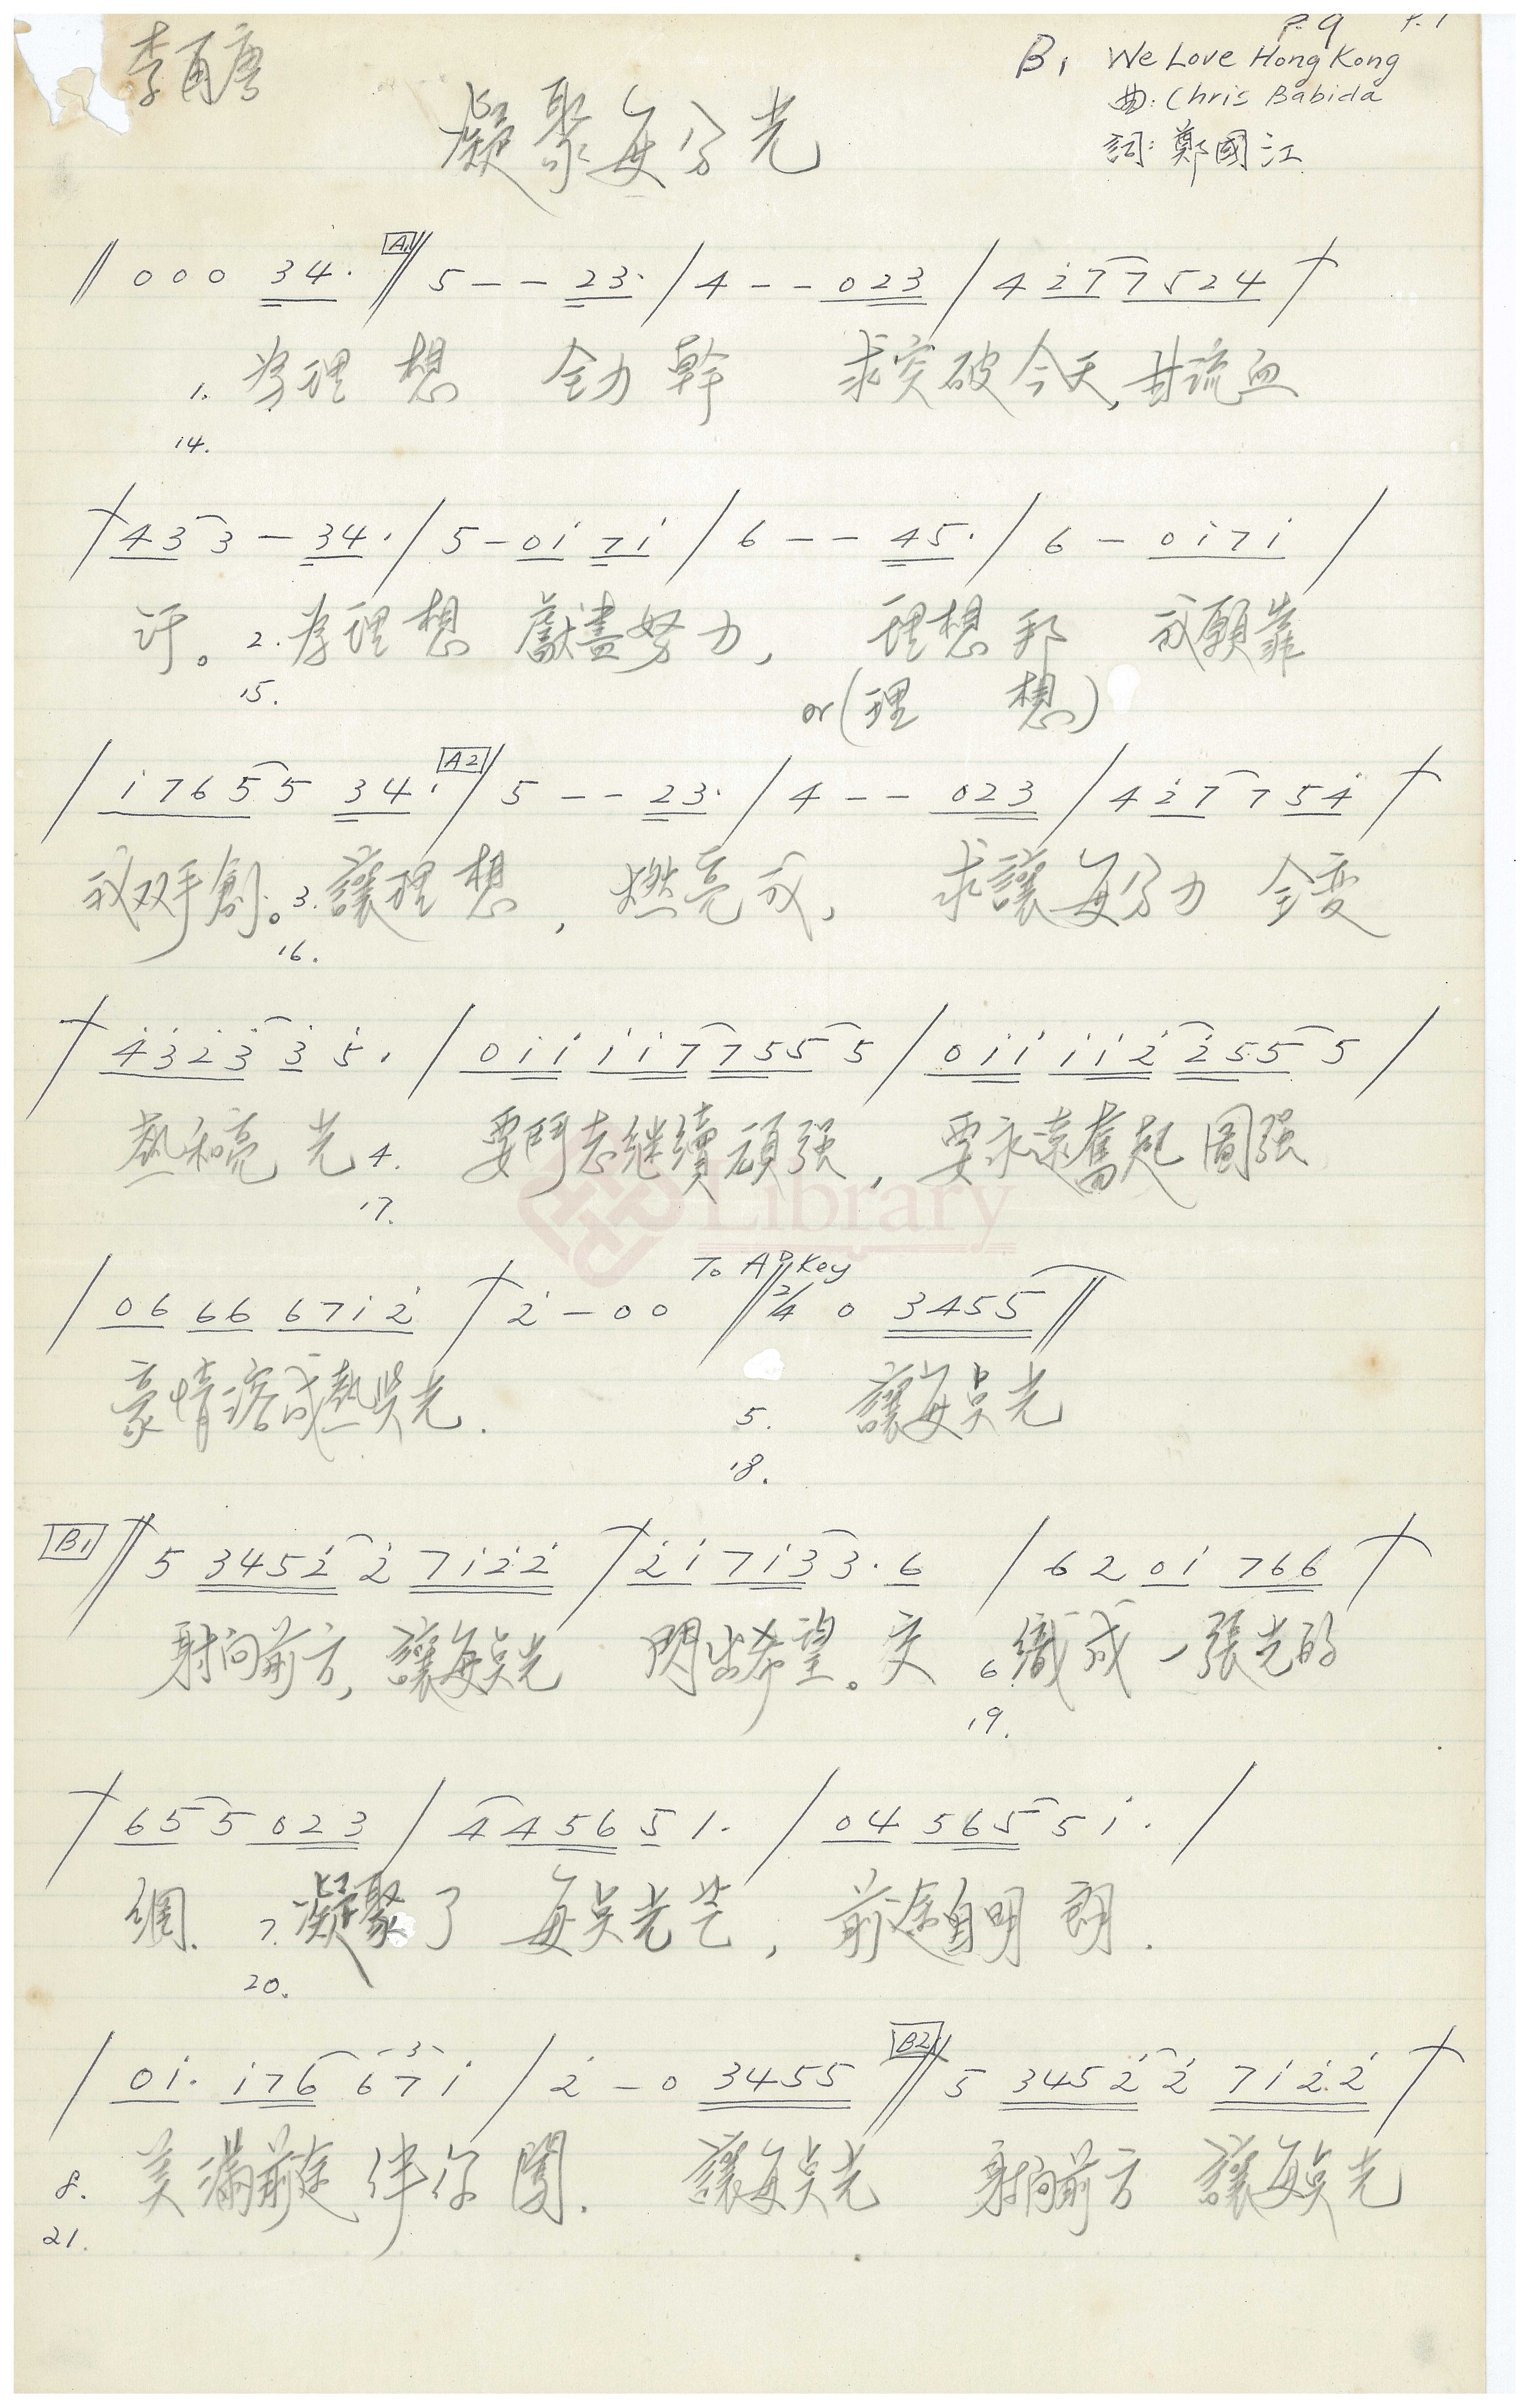 P.9 P.1
李甬唐
B1 We Love Hong Kong
曲: Chris Babida
凝聚每分光
詞: 鄭國江
‖ 0 0 0 34. A1 ‖ 5 - - 23. / 4 - - 023 / 4 2̇7 7524 /
1. 為理想 全力幹 求突破今天,甘流血
14.
/ 43 3 - 34. / 5 - 0i̇ 7i̇ / 6 - - 45. / 6 - 0i̇7i̇ /
汗。2. 為理想 獻盡努力, 理想邦 我願靠
15. or(理 想)
/ i̇765 5 34. A2 ‖ 5 - - 23. / 4 - - 023 / 4 2̇7 7 54̇ /
我双手創。3. 讓理想, 燃亮我, 求讓每分力 全变
16.
/ 4̇3̇2̇3̇ 3̇ 5̇. / 0i̇i̇ i̇i̇7 755 5 / 0i̇i̇ i̇i̇2̇ 2̇55 5 /
熱和亮光 4. 要鬥志继續頑强, 要永遠奮起圖强
17.
Library
To Ab Key
/ 06 66 67i̇2̇ / 2̇ - 0 0 ‖ 2/4 0 3455 ‖
豪情溶成熱與光. 5. 讓每点光
18.
B1 ‖ 5 3452̇ 2̇ 7i̇2̇2̇ / 2̇i̇ 7i̇3̇ 3̇. 6 / 6 2 0i̇ 766 /
射向前方, 讓每点光 閃出希望。交 6. 織成一張光的
19.
/ 65 5 023 / 4 456 5 1. / 04 565 5 i̇. /
網. 7. 凝聚了 每点光芒, 前途自明朗.
20.
/ 0i̇. i̇76 6 7 i̇ 3 / 2̇ - 0 3455 B2 ‖ 5 3452̇ 2̇ 7i̇2̇2̇ /
8. 美滿前途伴你闖. 讓每点光 射向前方 讓每点光
21.